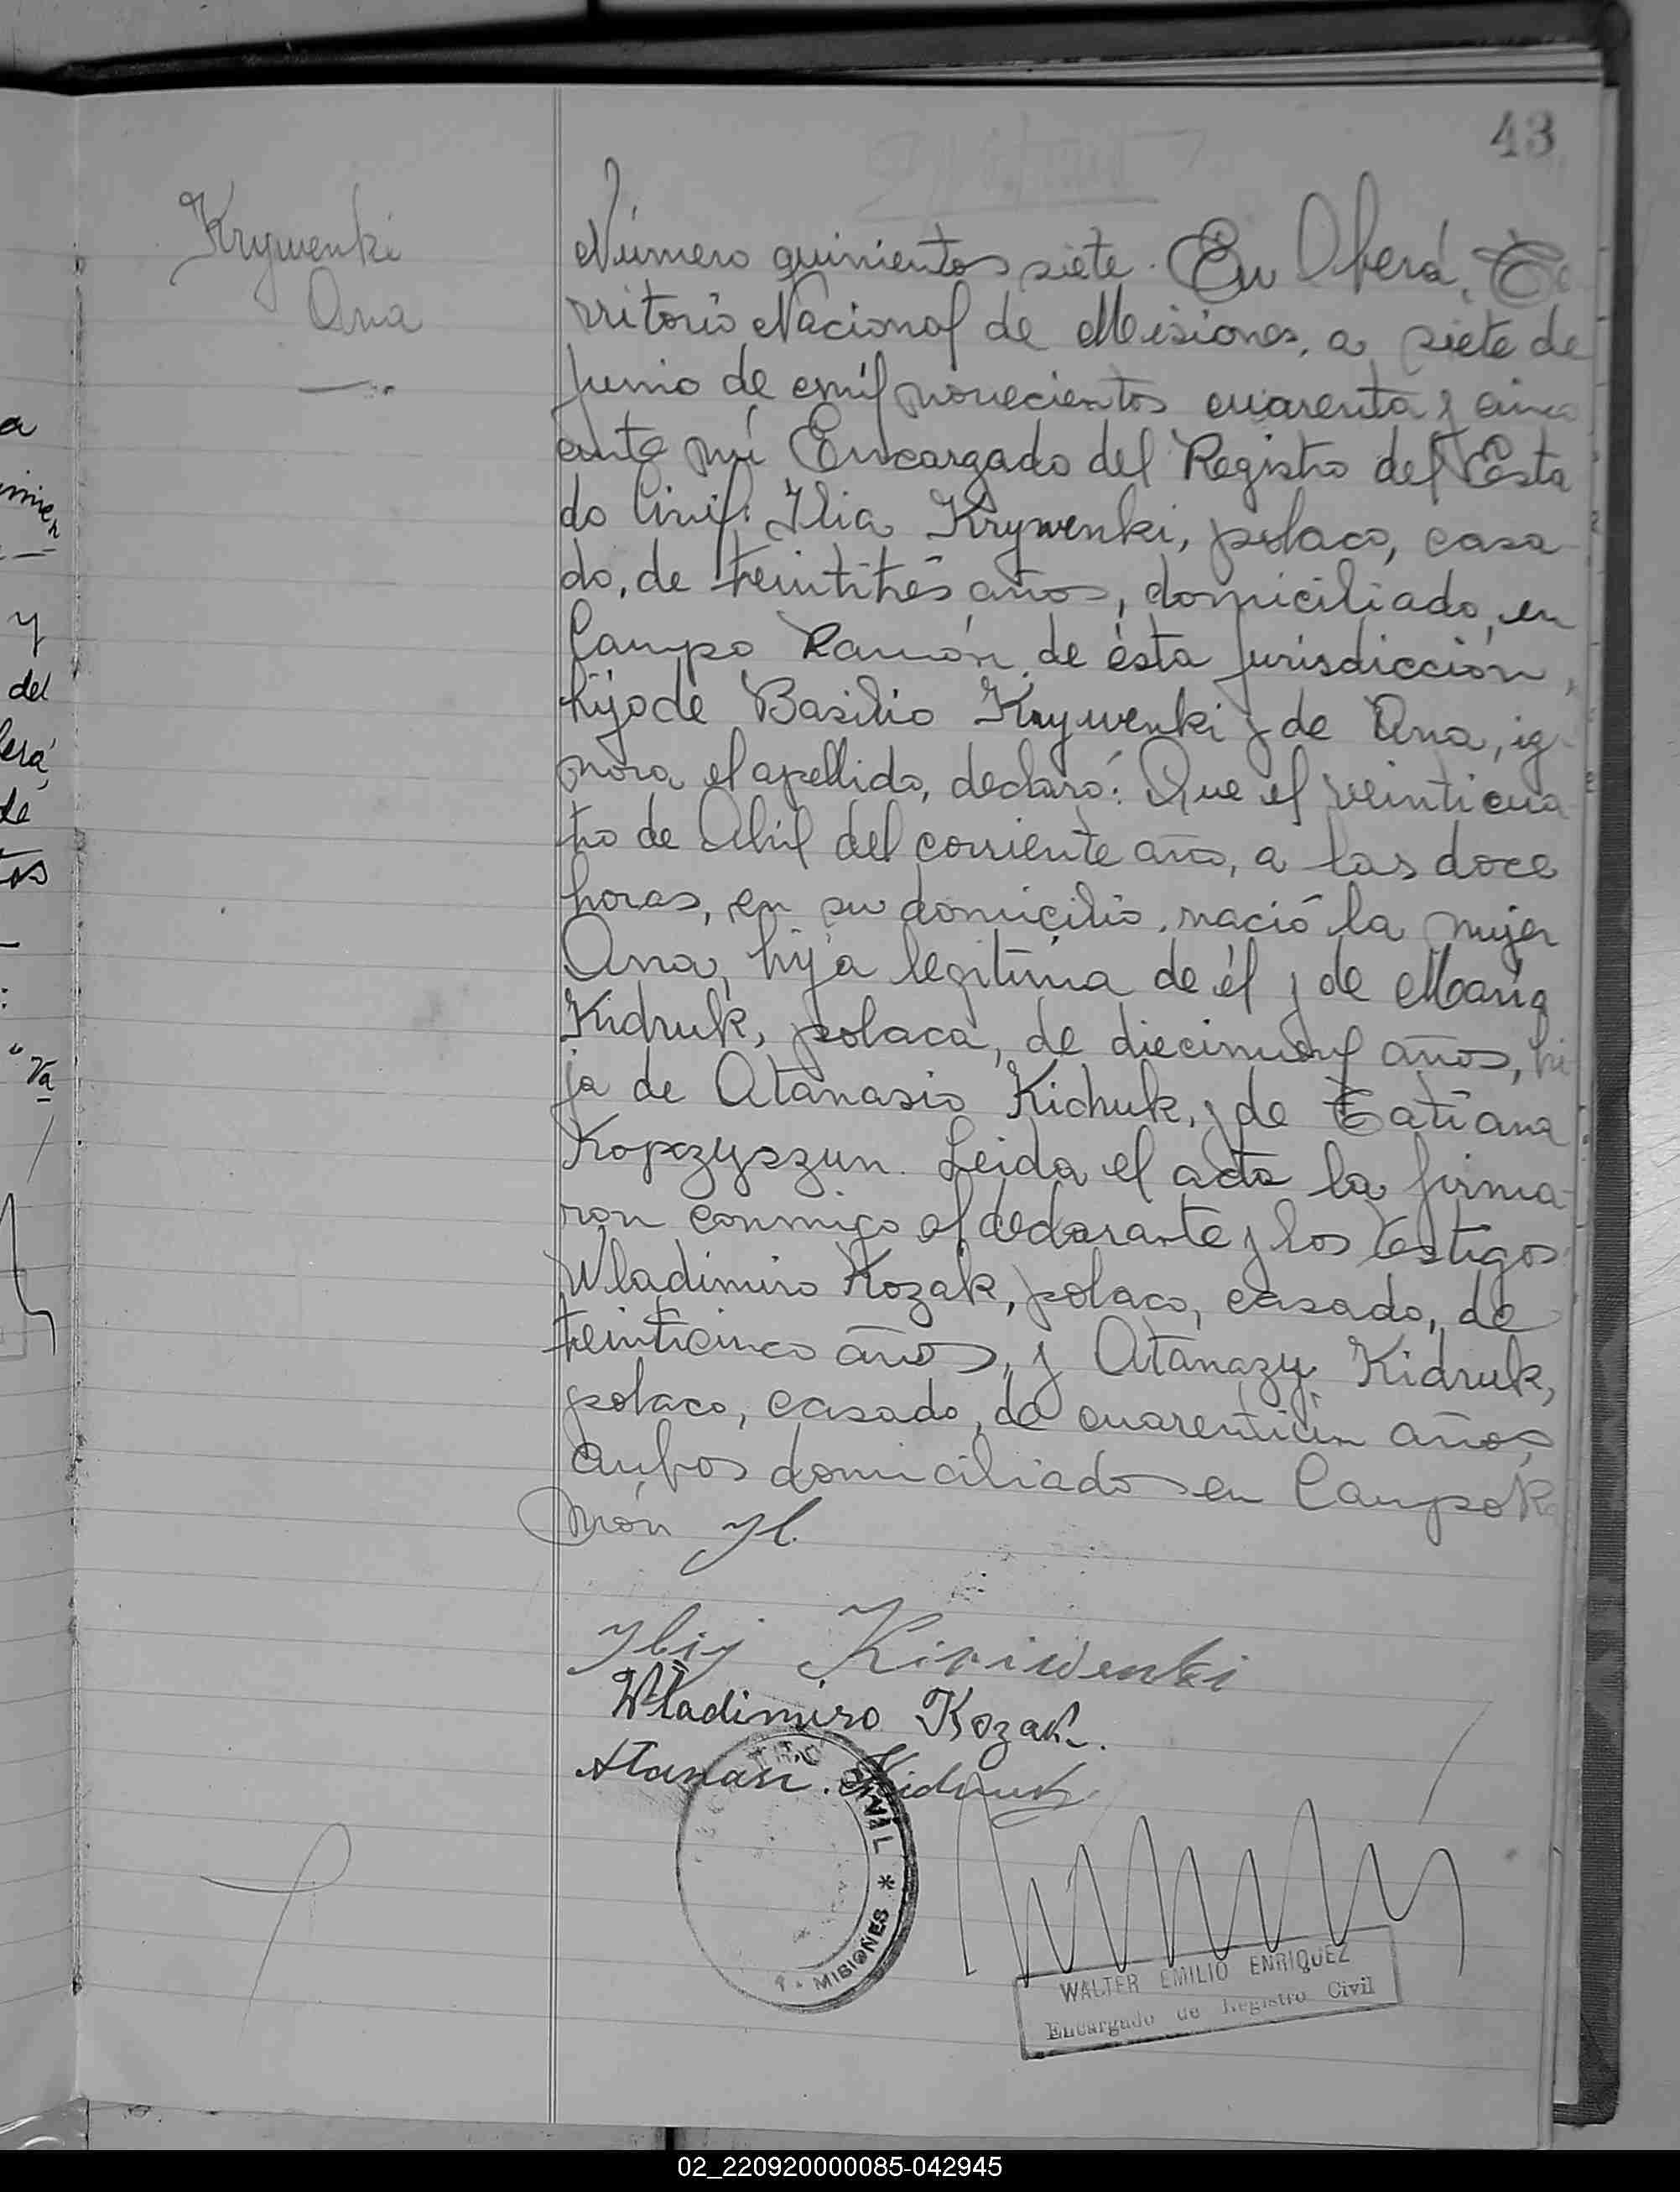 43
Krywenki
Ana
Número quinientos siete. En Oberá, Te
rritorio Nacional de Misiones, a siete de
Junio de mil novecientos cuarenta y cinco
ante mí Encargado del Registro del Esta
do Civil: Ilia Krywenki, polaco, casa
do, de treintitrés años, domiciliado, en
Campo Ramón de ésta jurisdicción,
hijo de Basilio Krywenki y de Ana, ig-
nora el apellido, declaró: Que el veinticua
tro de Abril del corriente año, a las doce
horas, en su domicilio, nació la mujer
Ana, hija legítima de él y de María
Kidruk, polaca, de años, hi
ja de Atanasio Kidruk, y de Tatiana
Kopczyszyn. Leida el acta la firma-
ron conmigo el declarante y los testigos
Wladimiro Kozak, polaco, casado, de
treinticinco años, y Atanazy Kidruk,
polaco, casado, de cuarentiún años,
ambos domiciliados en Campo Ra
món
Kiriwenki
Wladimiro Kozak.
Atanasi. Kidruk
CIVIL * MISIONES
WALTER EMILIO ENRIQUEZ
Encargado de Registro Civil
a
y
del
berá,
de
tos
Va
02_220920000085-042945